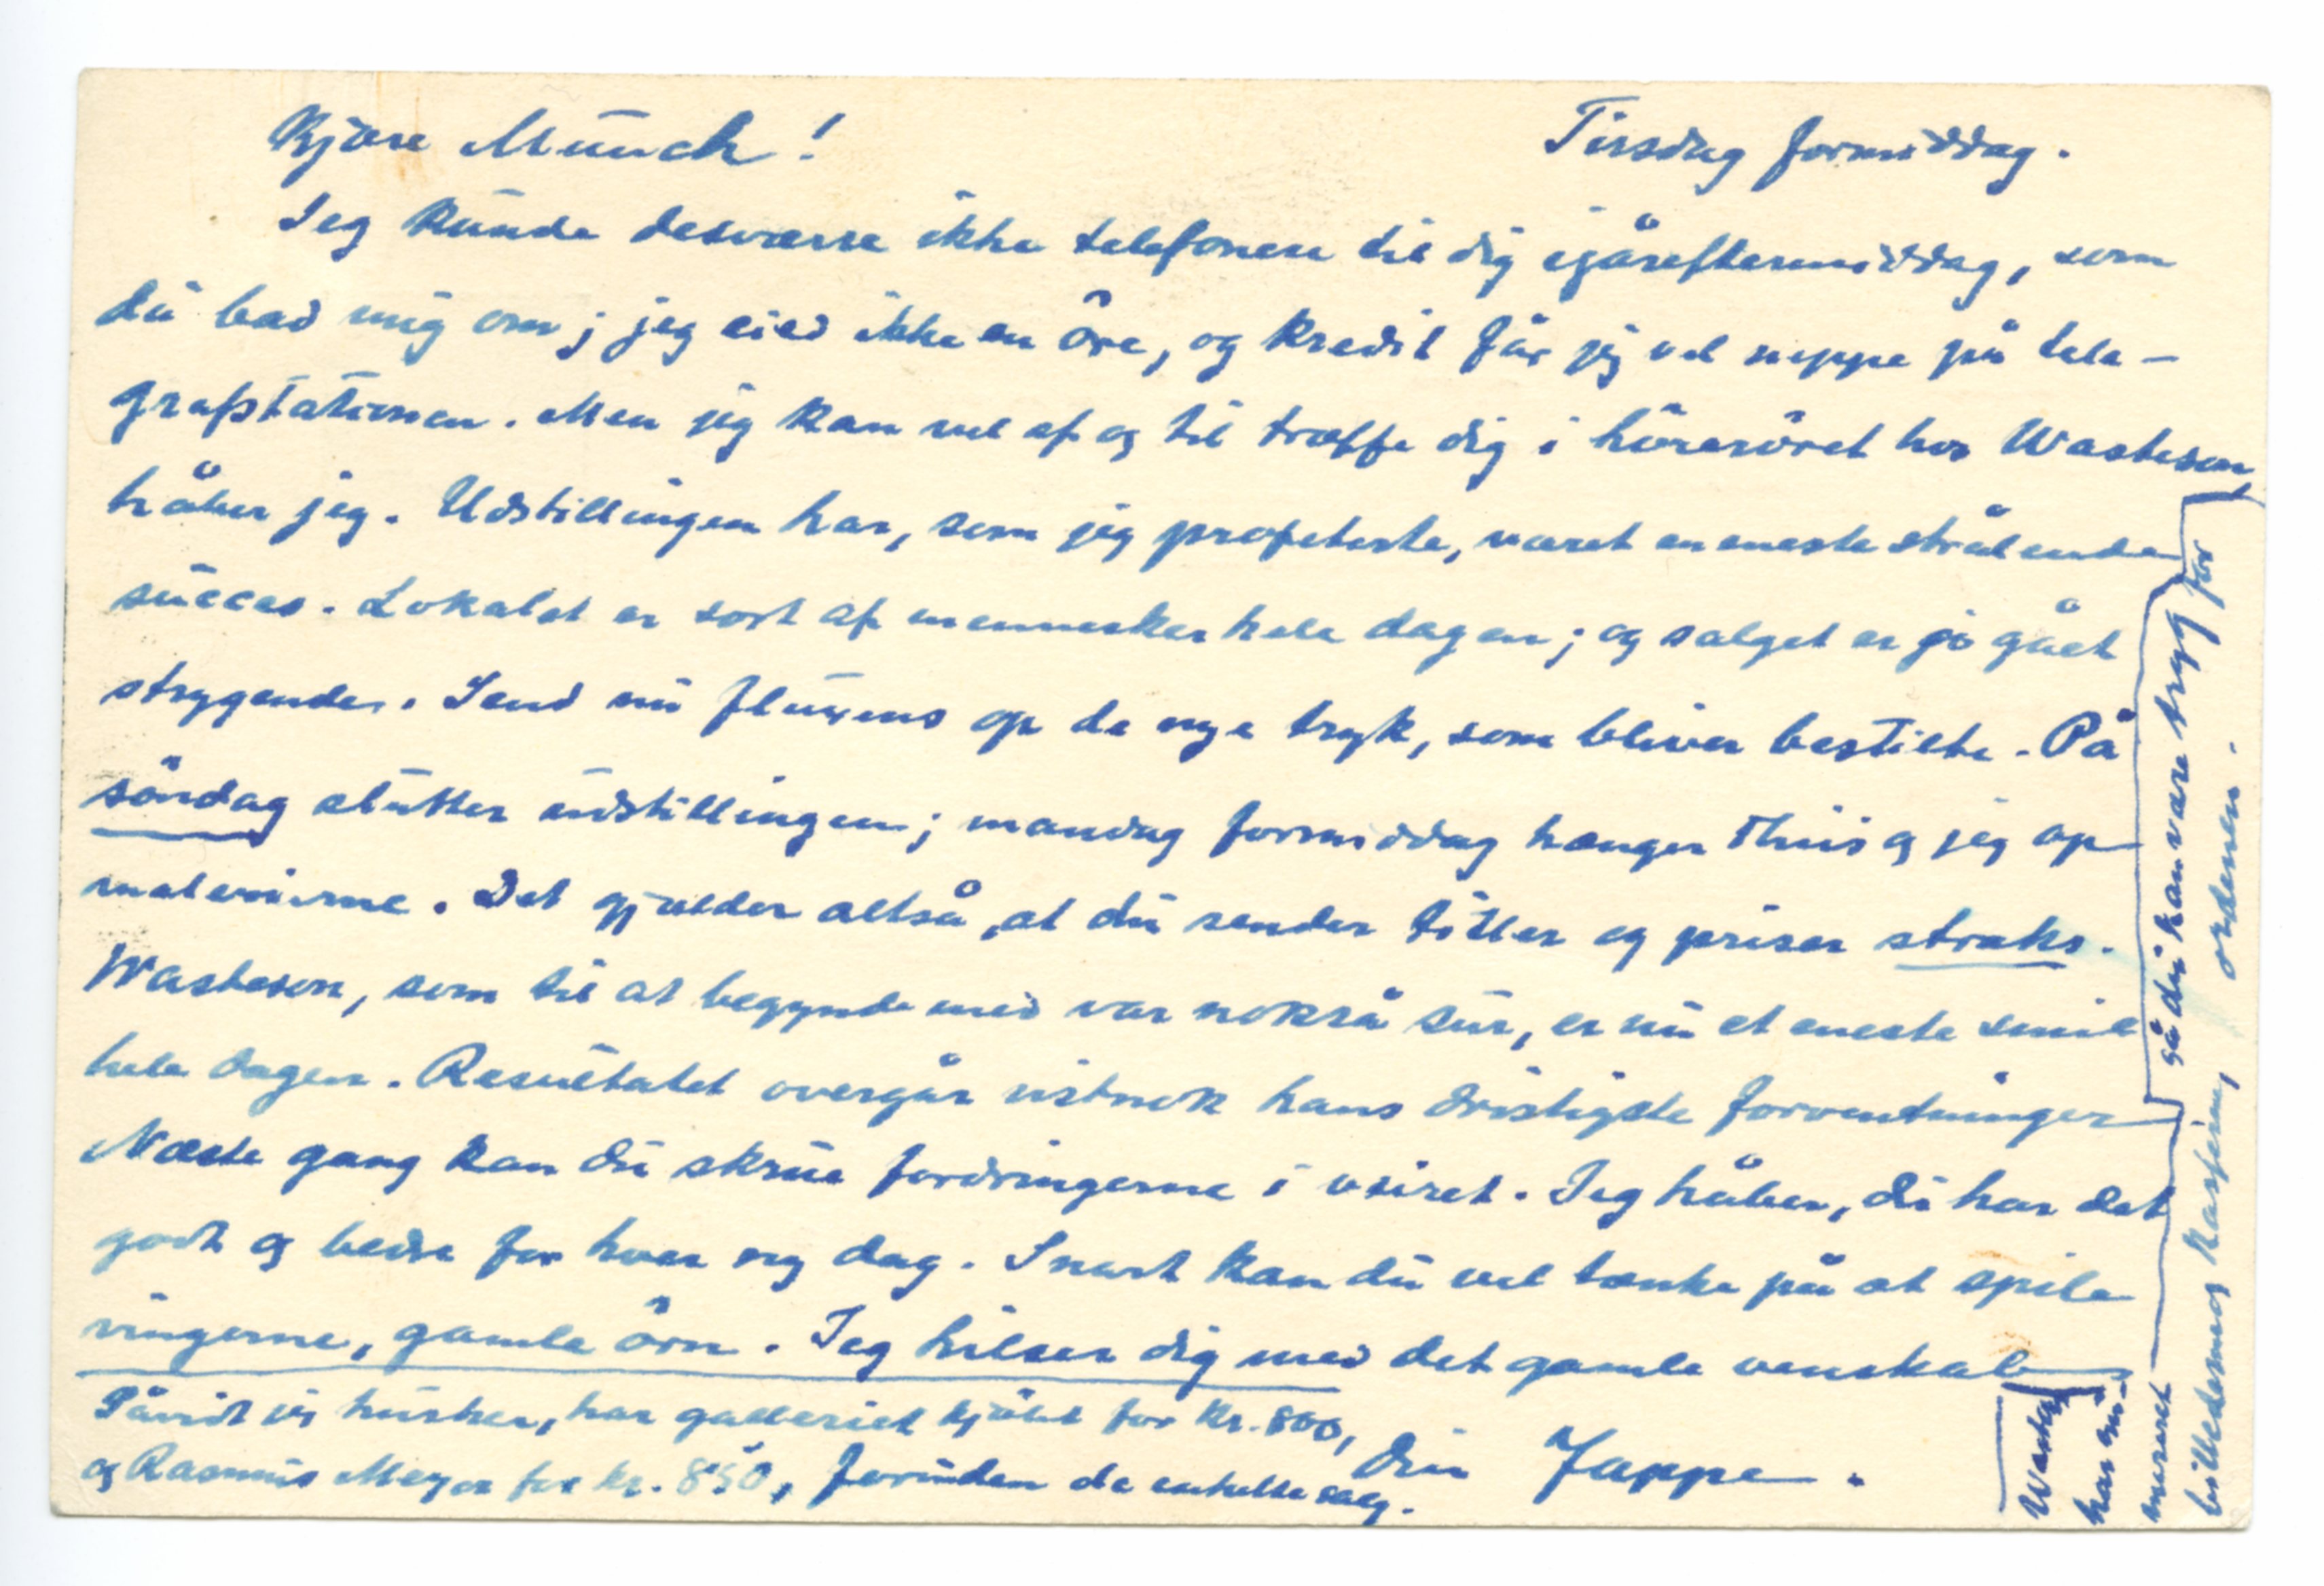 Tirsdag formiddag.
Kjære Munch!
Jeg kunde desværre ikke telefonere til dig igåreftermiddag, som
du bad mig om; jeg eied ikke en öre, og kredit får jeg vel neppe på tele-
grafstationen. Men jeg kan vel af og til træffe dig i hörerörét hos Wasteson,
håber jeg. Udstillingen har, som jeg profeterte, været en eneste strålende
succes. Lokalet er sort af mennesker hele dagen; og salget er jo gået
strygende. Send nu fluxens op de nye tryk, som bliver bestilte. På
söndag slutter udstillingen; mandag formiddag hænger Thiis og jeg op
malerierne. Det gjælder altså, at du sender titler og priser straks.
Wasteson, som til at begynde med var nokså sur, er nu et eneste smil
hele dagen. Resultatet overgår vistnok hans dristigste forventninger
Næste gang kan du skrue fordringerne i veiret. Jeg håber, du har det
godt og bedre for hver ny dag. Snart kan du vel tænke på at spile
vingerne, gamle örn. Jeg hilser dig med det gamle venskab
Din Jappe.
Såvidt jeg husker, har galleriet kjöbt for kr. 800,
og Rasmus Meyer for kr. 850, foruden de enkelte salg.
har
billedernes
så du kan være tryg for
ordenen.